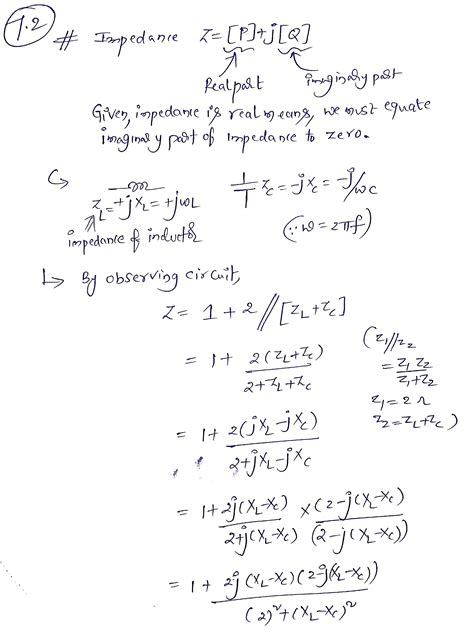 7.2
# Impedance Z = [P] + j[Q]
Real part imaginary part
Given, impedance is real means, we must equate
imaginary part of impedance to zero.
Z_L = +jX_L = +jωL
Z_C = -jX_C = -j/ωC
impedance of inductor
(∵ ω = 2πf)
↳ By observing circuit,
Z = 1 + 2 // [Z_L + Z_C]
= 1 + 2(Z_L + Z_C) / 2 + Z_L + Z_C
(Z_1 // Z_2
= Z_1 Z_2 / Z_1 + Z_2
Z_1 = 2 Ω
Z_2 = Z_L + Z_C)
= 1 + 2(jX_L - jX_C) / 2 + jX_L - jX_C
= 1 + 2j(X_L - X_C) / 2 + j(X_L - X_C) × (2 - j(X_L - X_C) / (2 - j(X_L - X_C))
= 1 + 2j(X_L - X_C)(2 - j(X_L - X_C)) / (2)² + (X_L - X_C)²